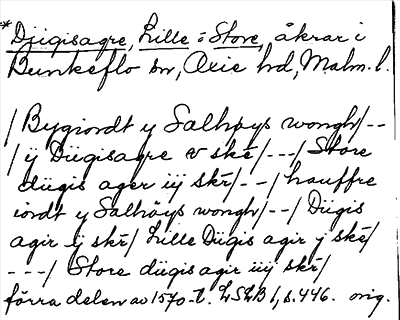 *Djigisagre, Lille o Store, åkrar i
Bunkeflo sn, Oxie hd, Malm. l.
/ Bygiordt y Salhøys wongh/--
/ ÿ Diigisagre v skē/---/ Store
diigis ager iiÿ skr̄/--/ hauffre
iordt y Salhöys wongh/--/ Diigis
agir ÿ skr̄/ Lille Diigis agir ÿ skē/
---/ Store diigis agir iiij skr̄/
förra delen av 1570-t. LSLB 1, s. 446. orig.